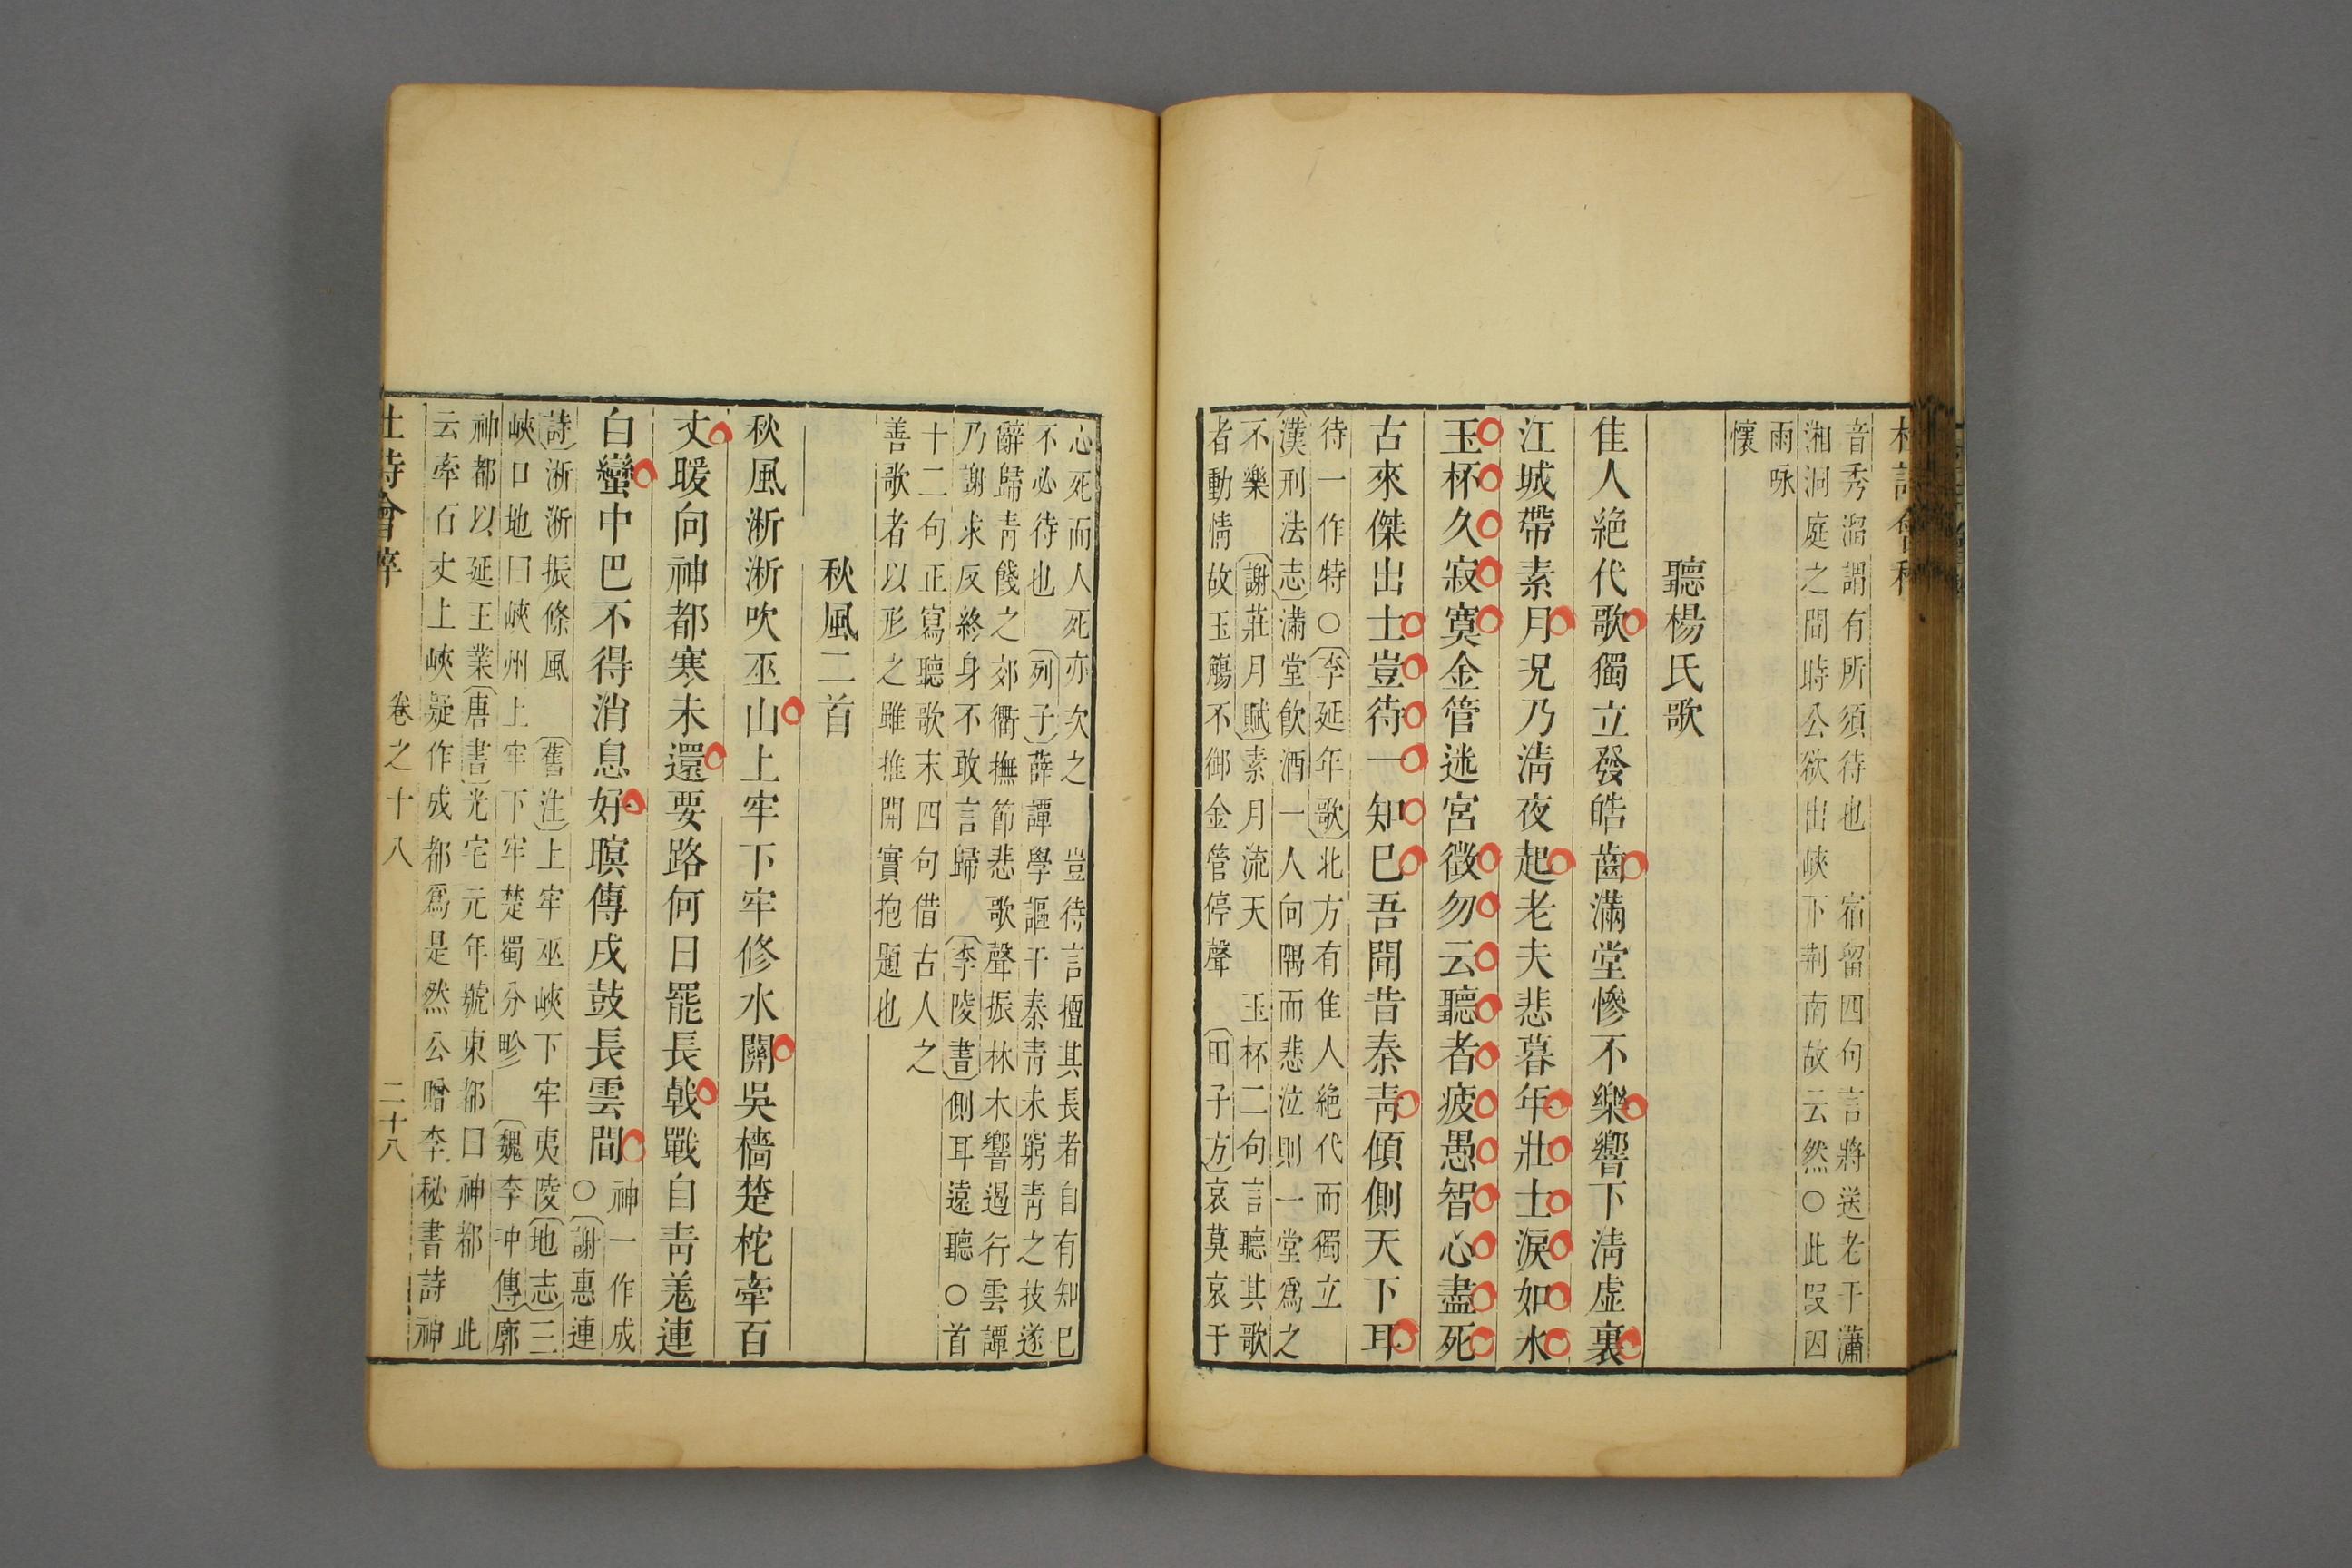 音秀溜謂有所須待也　宿留四句言將送老于瀟
湘洞庭之間時公欲出峽下荆南故云然○此叚因
雨咏
懷
聽楊氏歌
佳人絶代歌獨立發皓齒滿堂慘不樂響下淸虛裏
江城帶素月况乃淸夜起老夫悲暮年壯士淚如水
玉杯久寂寞金管迷宮徵勿云聽者疲愚智心盡死
古來傑出士豈待一知巳吾聞昔秦靑傾側天下耳
待一作特○〔李延年歌〕北方有佳人絶代而獨立
〔漢刑法志〕滿堂飲酒一人向隅而悲泣則一堂爲之
不樂　〔謝莊月賦〕素月流天　玉杯二句言聽其歌
者動情故玉觴不御金管停聲　〔田子方〕哀莫哀于
心死而人死亦次之　豈待言擅其長者自有知巳
不必待也　〔列子〕薛譚學謳于秦靑未窮靑之技遂
辭歸靑餞之郊衢撫節悲歌聲振林木響遏行雲譚
乃謝求反終身不敢言歸　〔李陵書〕側耳遠聽○首
十二句正寫聽歌末四句借古人之
善歌者以形之雖推開實抱題也
秋風二首
秋風淅淅吹巫山上牢下牢修水關吳檣楚柁牽百
丈暖向神都寒未還要路何日罷長戟戰自靑羗連
白蠻中巴不得消息好暝傳戍鼓長雲間
神一作成
○〔謝惠連
詩〕淅淅振條風　〔舊注〕上牢巫峽下牢夷陵〔地志〕三
峽口地曰峽州上牢下牢楚蜀分畛　〔魏李冲傳〕廓
神都以延王業〔唐書〕光宅元年號東都曰神都　此
云牽百丈上峽疑作成都爲是然公贈李秘書詩神
杜詩會稡　卷之十八　二十八